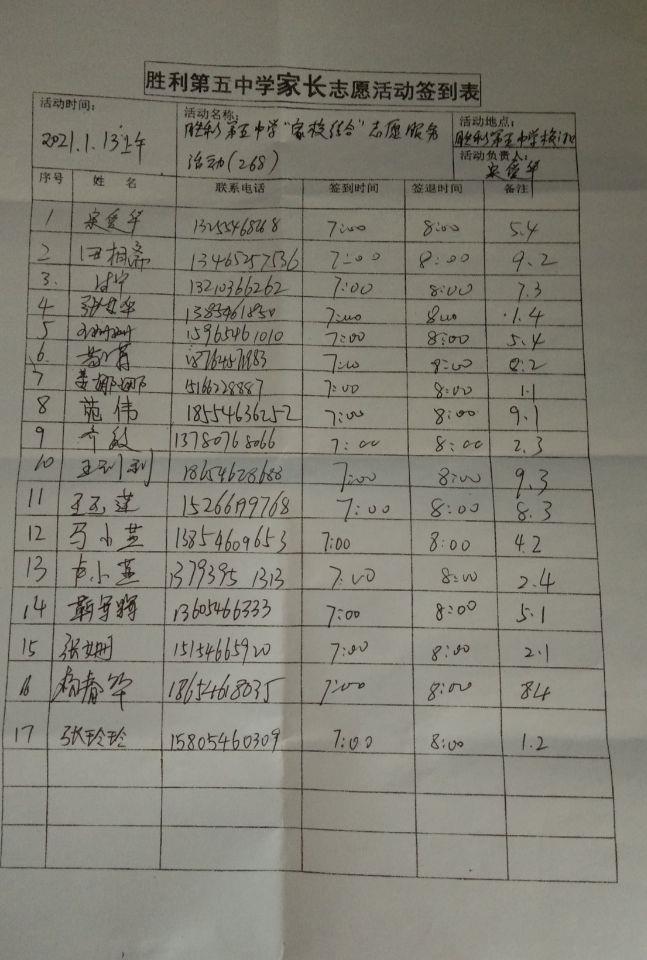 胜利第五中学家长志愿活动签到表
活动时间： 活动名称： 活动地点：
2021.1.13上午 胜利第五中学“家校结合”志愿服务 胜利第五中学校门口
活动(268) 活动负责人：
序号 姓名 联系电话 签到时间 签退时间 备注
1 7:00 8:00 5.4
2 13465257536 7:00 8:00 9.2
3. 13210366262 7:00 8:00 7.3
4 7:00 8:00 1.4
5 15965461010 7:00 8:00 5.4
6. 7:00 8:00 8.2
7 娜娜 15166228887 7:00 8:00 1.1
8 苑伟 18554636252 7:00 8:00 9.1
9 敏 13780768066 7:00 8:00 2.3
10 王利利 18654628688 7:00 8:00 9.3
11 王玉莲 15266199768 7:00 8:00 8.3
12 马小燕 13854609653 7:00 8:00 4.2
13 卢小燕 1379395 1313 7:00 8:00 2.4
14 13605466333 7:00 8:00 5.1
15 张姗 15154665920 7:00 8:00 2.1
16 杨春华 18654618035 7:00 8:00 8.4
17 张玲玲 15805460309 7:00 8:00 1.2